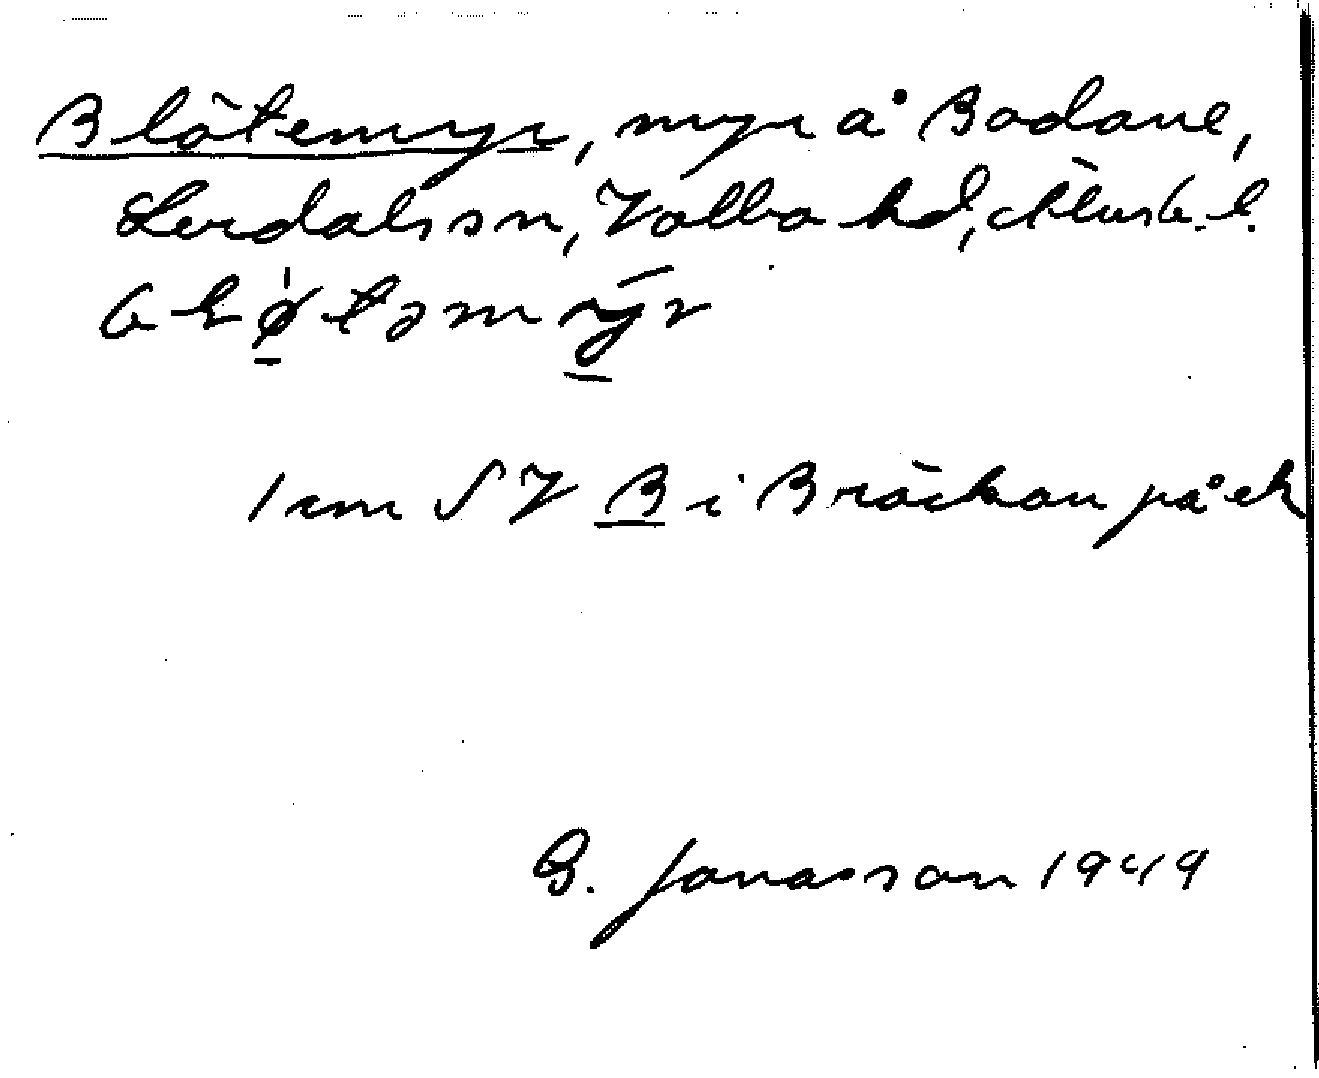 Blötemyr, myr å Bodane,
Lerdals sn, Valbo hd, Älvsb. l.
1 cm SV B i Bräckan på ek
G. Jonasson 1949